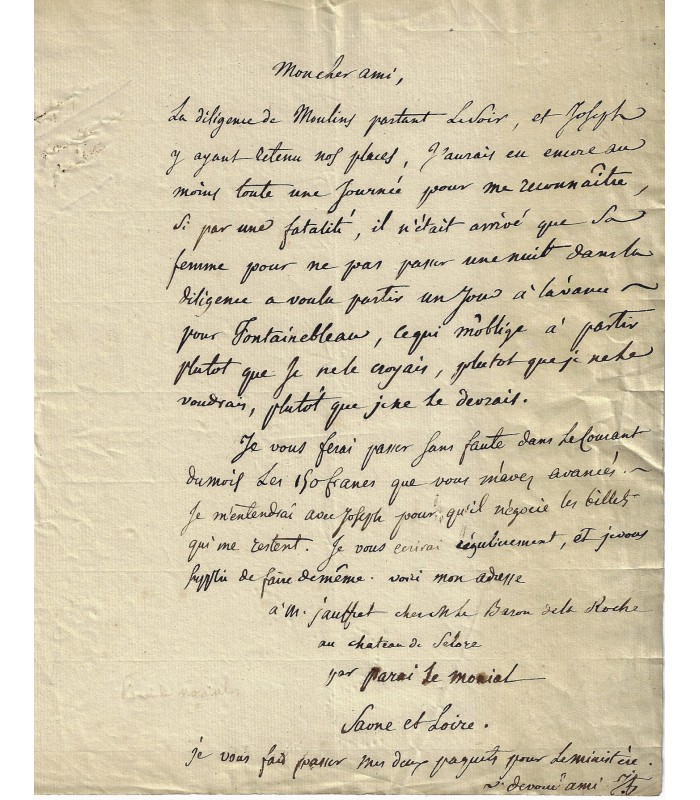 Mon cher ami,
La diligence de Moulins partant le soir, et Joseph
y ayant retenu nos places, J'aurais eu encore au
moins toute une Journée pour me reconnaître,
Si par une fatalité, il n'était arrivé que Sa
femme pour ne pas passer une nuit dans la
diligence a voulu partir un Jour à l'avance ~
pour Fontainebleau, ce qui m'oblige à partir
plutôt que Je ne le croyais, plutôt que je ne le
voudrais, plutôt que je ne le devrais.
Je vous ferai passer sans faute dans le Courant
du mois Les 150 francs que vous m'avez avancés. ~
Je m'entendrai avec Joseph pour qu'il négocie les billets
qui me restent. Je vous écrirai régulièrement, et je vous
supplie de faire de même. voici mon adresse
à M. jauffret chez M. le Baron de la Roche
au chateau de Selore
par parai le monial
Saone et Loire.
je vous fais passer mes deux paquets pour le ministère.
devoué ami